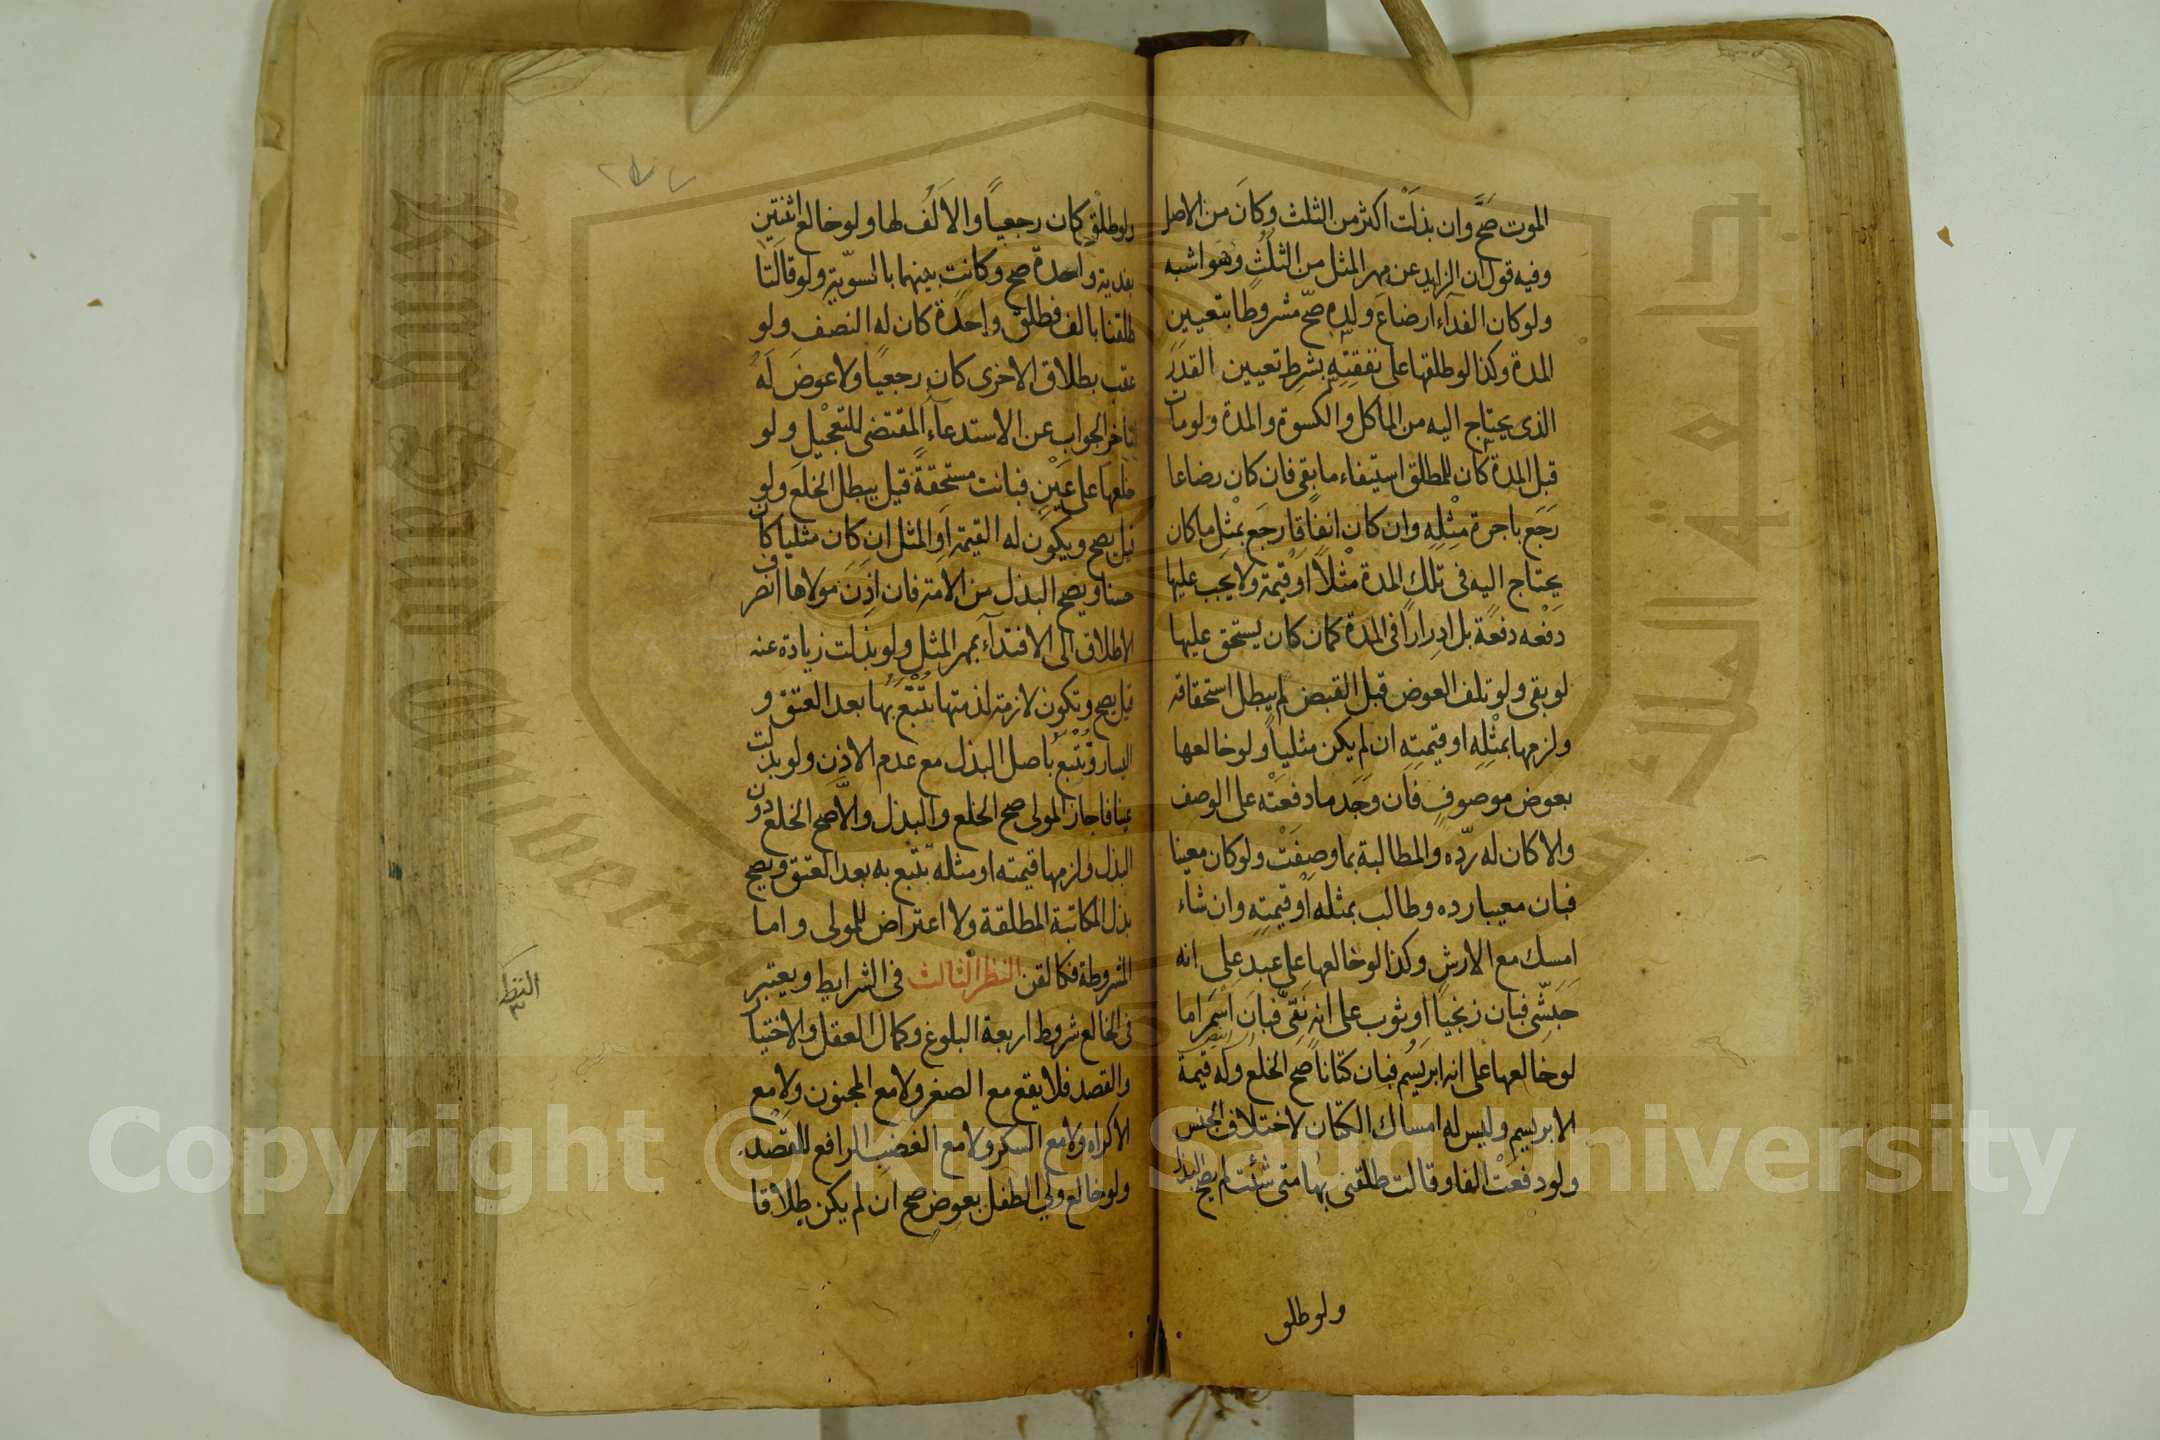 الموت صَحَّ وان بذلَتْ اكثر من الثلث وكانَ من الاصل
وفيه قول ان الزايد عن مهر المثل من الثلُثِ وهَو اشبه
ولو كان الفدآء ارضاعَ ولدِه صحّ مشروطا بتعيين
المدة وكذا لو طلقها على نفقتِهِ بشرطِ تعيين القَدَرَ
الذى يحتاج اليه من المأكل والكسوة والمدة ولو مات
قبل المدة كان للمطلق استيفاء ما بقى فان كان رضاعا
رَجَع باجرة مِثْلِهِ وان كان انفاقا رجَع بمْثِل ما كان
يحتاج اليه فى تلك المدة مثْلاً اوْ قيمة ولا يجب عليها
دَفْعه دفعًة بل ادِرارا فى المدة كما كان يستحق عليها
لو بقى ولو تلف العوض قبل القبض لم يبطل استحقاقه
ولزمها بمثْلِهِ او قيمتِهِ ان لم يكن مثلياً ولو خالعها
بعوض موصوفٍ فان وَجَد ما دفعَتْه على الوصف
والا كان له ردّه والمطالبة بما وصِفَتْ ولو كان معينا
فبان معيبا رده وطالب بمثله اوْ قيمتِهِ وان شاء
امسك مع الارشِ وكذا لو خالعها على عبدِ على انه
حَبَشّى فبان زنجياً او ثوب على انه نَقىّ فبانَ اسْمر اما
لو خالعها على انه ابريسُم فبان كتّاناً صح الخلع وله قيمة
الابريسم وليس له امساك الكتان لاختلاف الجنس
ولو دفعَتْ الفا وقالت طلقنى بها متى شئت لم يصح البذل
ولو طلق
ولو طلّق كان رجعياً والاَلَف لها ولو خالع اثنتين
بفدية واحدة صح وكانت بينهما بالسوّية ولو قالَتا
طلقنا بالف فطلق واحِدةً كان له النصف ولو
عقب بطلاق الاخرى كان رجعياً ولا عوضَ لَهُ
لتاخر الجواب عن الاستدعآءِ المقتضى للتعجْيل ولو
خلعها على عَيْنٍ فبانت مستحقةً قيل يبطل الخلع ولو
قيل يصح ويكون له القيمة اَوِ المثل ان كان مثليا كان
حسنا ويصح البذل من الامة فان اذِنَ مولاها انصرف
الاطلاق الى الافتدآء بمهر المثل ولو بذلت زيادة عنه
قيل يصح وتكون لازمة لذمتها تُتْبَع بها بعد العتق و
اليسار وتُتْبَع باصل البذل مع عدم الاذن ولو بذلت
عينا فاجاز المولى صح الخلع والبذل والاَّ صح الخلع دون
البذل ولزمها قيمته او مثله تتّبع به بعد العتق ويصح
بذل المكاتبة المطلقة ولا اعتراض للمولى واما
المشروطة فكالقن النظر الثالث فى الشرايط ويعتبر
فى الخالع شروط اربعة البلوغ وكمال العقل والاختيار
والقصد فلا يقع مع الصغر ولا مع الجنون ولا مع
الاكراه ولا مع السكر ولا مع الغضبِ الرافع للقصد
ولو خالع ولي الطفل بعوضٍ صح ان لم يكن طلاقا
النظر
٣
Copyright © King Saud University
King Saud University
جامعة الملك سعود
1957